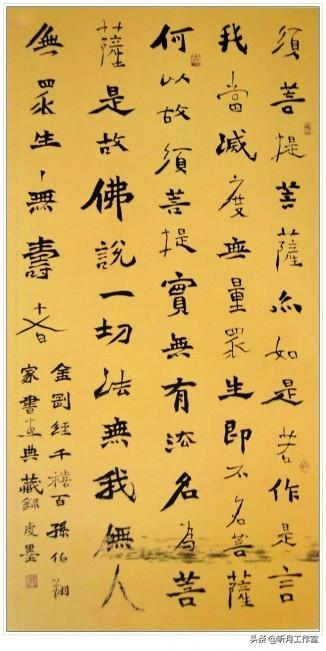 須菩提菩薩亦如是若作是言
我當滅度無量眾生即不名菩薩
何以故須菩提實無有法名為菩
薩是故佛說一切法無我無人
無眾生、無壽者
金剛經千禧百孫伯翔
家書畫典藏錄墨
头条 @昕月工作室